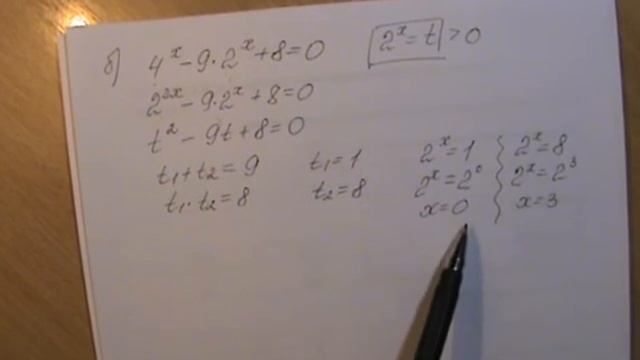 б) 4ˣ - 9·2ˣ + 8 = 0 2ˣ = t > 0
2²ˣ - 9·2ˣ + 8 = 0
t² - 9t + 8 = 0
t₁ + t₂ = 9 t₁ = 1 2ˣ = 1 2ˣ = 8
t₁ · t₂ = 8 t₂ = 8 2ˣ = 2⁰ 2ˣ = 2³
x = 0 x = 3